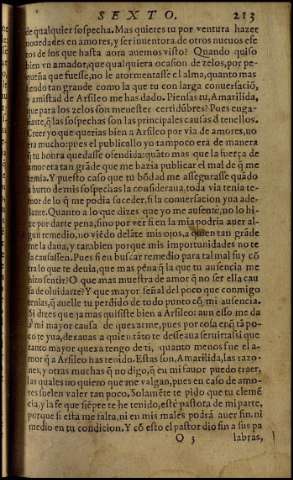 SEXTO. 213
de qualquier sospecha. Mas quieres tu por ventura hazer
nouedades en amores, y ser inuentora de otros nueuos efe
tos de los que hasta aora auemos visto? Quando quiso
bien vn amador, que qualquiera ocasion de zelos, por pe-
queña que fuesse, no le atormentasse el alma, quanto mas
siendo tan grande como la que tu con larga conuersaciõ,
y amistad de Arsileo me has dado. Piensas tu, Amarilida,
que para los zelos son menester certidũbres? Pues enga-
ñaste, q̃ las sospechas son las principales causas d tenellos.
Creer yo que querias bien a Arsileo por via de amores, no
era mucho: pues el publicallo yo tampoco era de manera
q̃ tu honra quedasse ofendida: quãto mas que la fuerça de
amor era tan grãde que me hazia publicar el mal de q̃ me
temia. Y puesto caso que tu bõdad me assegurasse quãdo
a hurto de mis sospechas la consideraua, toda via tenia te-
mor de lo q̃ me podia suceder, si la conuersacion yua ade-
lante. Quanto a lo que dizes que yo me ausente, no lo hi-
ze por darte pena, sino por ver si en la mia podria auer al-
gun remedio, no viẽdo delãte mis ojos, a quien tan grãde
me la daua, y tambien porque mis importunidades no te
la causassen. Pues si en buscar remedio para tal mal fuy cõ
tra lo que te deuia, que mas pena q̃ la que tu ausencia me
hizo sentir? O que mas muestra de amor q̃ no ser ella cau
sa de oluidarte? Y que mayor señal del poco que conmigo
tenias, q̃ auelle tu perdido de todo punto cõ mi ausencia.
Si dizes que jamas quisiste bien a Arsileo: aun esso me da
a mi mayor causa de quexarme, pues por cosa en q̃ tã po-
co te yua, dexauas a quien tãto te desseaua seruir: assi que
tanto mayor quexa tengo de ti, quanto menos fue el a-
mor q̃ a Arsileo has tenido. Estas son, Amarilida, las razo-
nes, y otras muchas q̃ no digo, q̃ en mi fauor puedo traer,
las quales no quiero que me valgan, pues en caso de amo-
res suelen valer tan poco, Solamẽte te pido que tu clemẽ
cia, y la fe que siẽpre te he tenido, estè pastora de mi parte,
porque si esta me falta, ni en mis males podrá auer fin, ni
medio en tu condicion. Y cõ esto el pastor dio fin a sus pa
Q 3 labras,